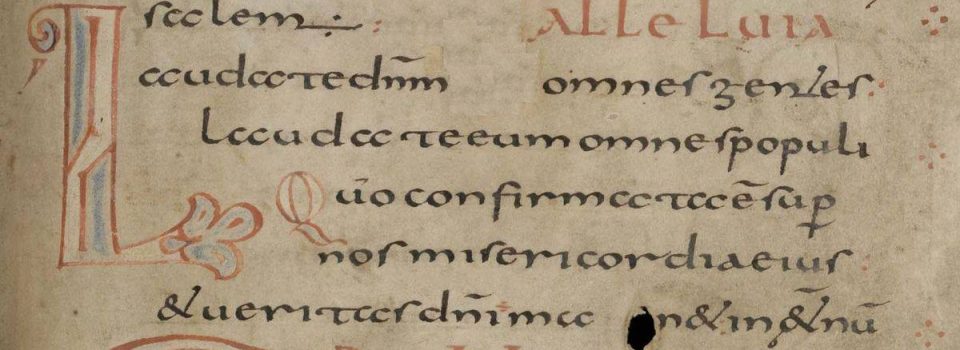 sclem ÷ : Alleluia
Laudate dn̄m omnes gentes :
Laudate eum omnes populi
Qūo confirmata ē sup̲
nos misericordia eius :
& ueritas dn̄i ma n& in &̄nū